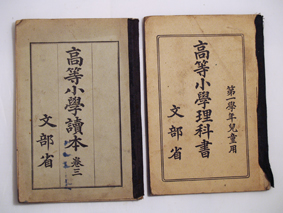 高等小學讀本 卷三
文部省
第一學年兒童用
高等小學理科書
文部省